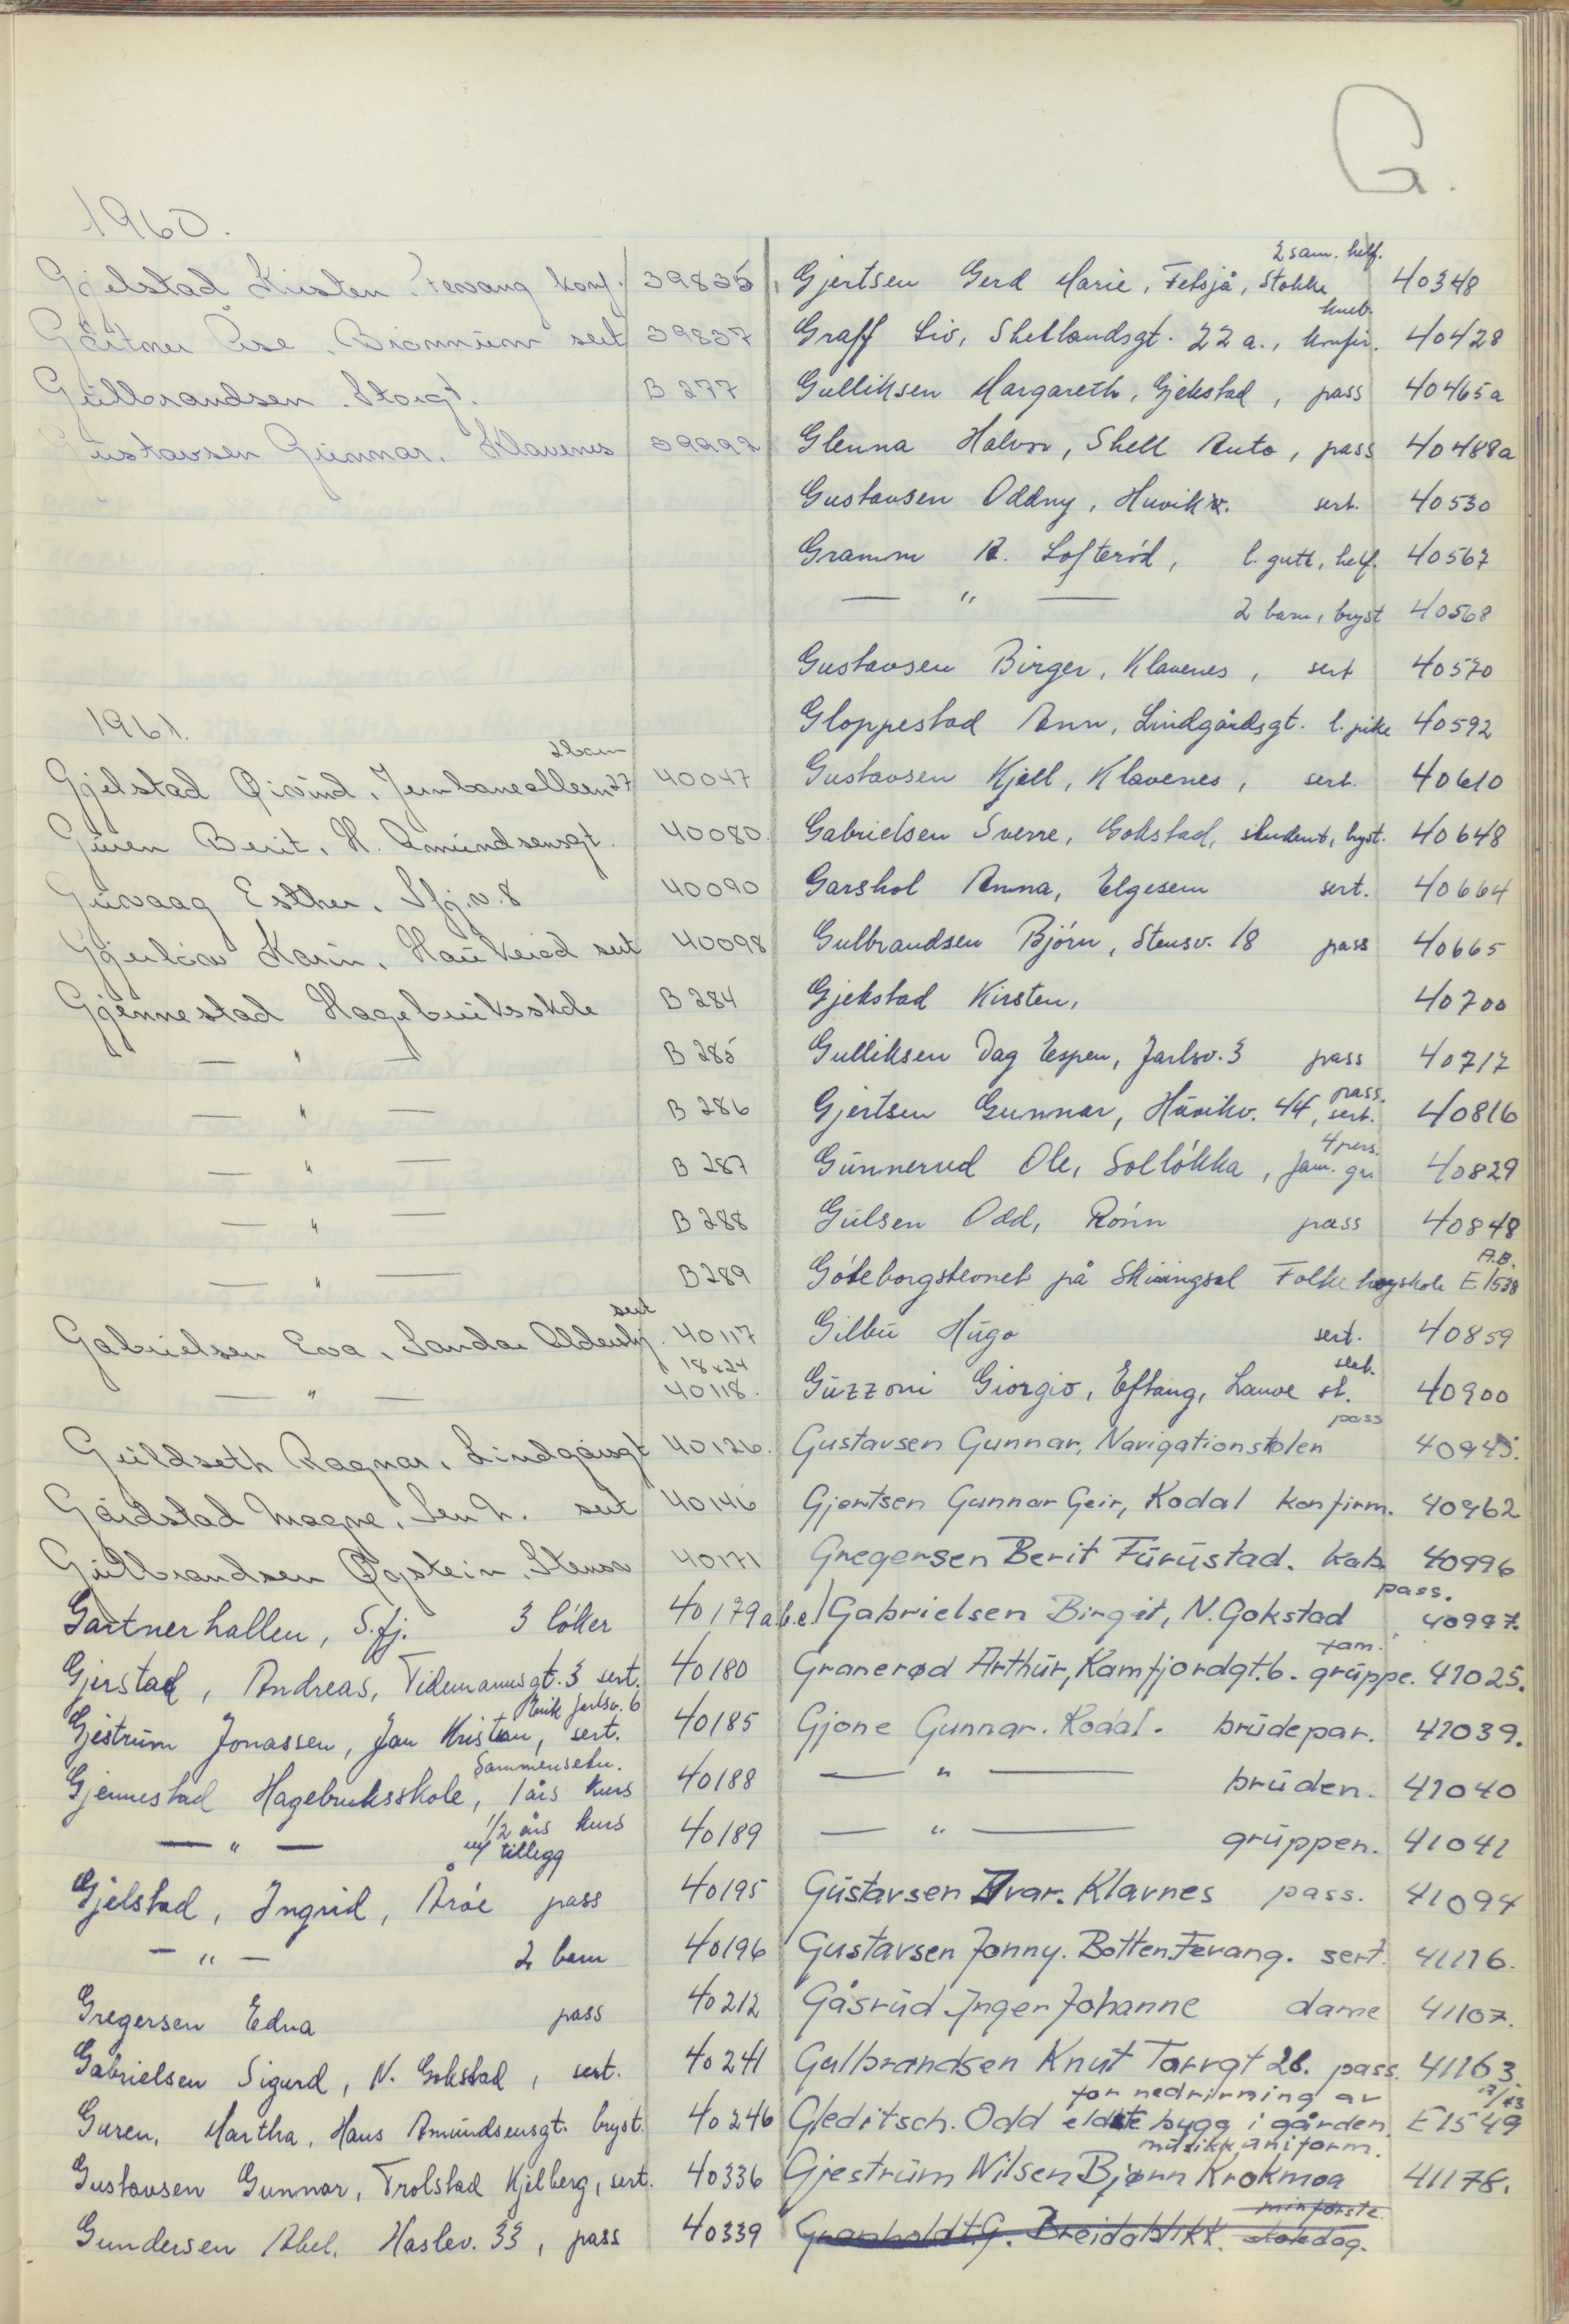 G.
1960.
Gjelstad Kirsten. Fevang konf. 39835
Gärtner Åse. Brønnum sert 39837
Gulbrandsen. Storgt. B 277
Gustavsen Gunnar. Klavenes 39992
1961.
Gjelstad Øivind. Jernbanealleen 27 2 barn 40047
Guren Berit. H. Amundsensgt. 40080.
Guvaag Esther. Sfj.v. 8 40090
Karin. Haukerød sert 40098
Gjennestad Hagebruksskole B 284
— " — B 285
— " — B 286
— " — B 287
— " — B 288
— " — B 289
Gabrielsen Eva. Sandar Aldershj. sert 40117
— " — 18x24 40118.
Guldseth Ragnar. Lindgårsgt 40126.
Gårdstad Magne. sert 40146
Gulbrandsen Øystein. Stensv 40171
Gartnerhallen, S.fj. 3 löker 40179 a.b.c.
Gjerstad, Andreas, Tidemannsgt. 3 sert. 40180
Gjestrüm Jonassen, Jan Kristian, sert. Jarlsv. 6 40185
Gjennestad Hagebruksskole, 1 års kurs Sammensetn. 40188
— " — 1/2 års kurs m/ tillegg 40189
Gjelstad, Ingrid, Åröe pass 40195
— " — 2 barn 40196
Gregersen Edna pass 40212
Gabrielsen Sigurd, N. Gokstad, sert. 40241
Guren, Martha, Hans Amundsensgt. bryst. 40246
Gustavsen Gunnar, Trolstad Kjelberg, sert. 40336
Gundersen Abel. Haslev. 33, pass 40339
Gjertsen Gerd Marie, Feksjå, Stokke 2 sam. helf. 40348
Graff Liv, Shetlandsgt. 22 a., konfir. kneb. 40428
Gulliksen Margareth, Gjekstad, pass 40465a
Glenna Halvor, Shell Auto, pass 40488a
Gustavsen Oddny, Huvikv. sert. 40530
Gramm R. Lofteröd, l. gutt, helf. 40567
— " — 2 barn, bryst 40568
Gustavsen Birger, Klavenes, sert 40570
Gloppestad Ann, Lindgårdsgt. l. pike 40592
Gustavsen Kjell, Klavenes, sert. 40610
Gabrielsen Sverre, Gokstad, student, bryst. 40648
Garshol Anna, Elgesem sert. 40664
Gulbrandsen Björn, Stensv. 18 pass 40665
Gjekstad Kirsten, 40700
Gulliksen Dag Espen, Jarlsv. 3 pass 40717
Gjertsen Gunnar, Hüvikv. 44, pass. sert. 40816
Günnerud Ole, Sollökka, fam. gr. 4 pers. 40829
Gülsen Odd, Rönn pass 40848
Göteborgstevnet på Skiringsal Folkehøyskole A.B. E1538
Gilbü Hügo sert. 40859
Güzzoni Giorgio, Eftang, Lauve st. sert. 40900
Gustavsen Gunnar, Navigationskolen pass 40945.
Gjertsen Gunnar Geir, Kodal konfirm. 40962
Gregersen Berit Fürüstad. kab. 40996
Gabrielsen Birgit, N. Gokstad pass. 40997.
Granerød Arthür, Kamfjordgt. 6. fam. grüppe. 41025.
Gjone Gunnar. Kodal. brüdepar. 41039.
— " — brüden. 41040
— " — grüppen. 41041
Güstavsen Ivar. Klavnes pass. 41094
Gustavsen Jonny. Botten. Fevang. sert. 41116.
Gåsrüd Inger Johanne dame 41107.
Gulbrandsen Knut Torvgt 28. pass. 41163.
Gleditsch. Odd for nedrivning av eldste bygg i gården. E1549
Gjestrüm Nilsen Bjørn Krokmoa müsikküniform. 41178.
Granholdt G. Breidablikk. min første skoledag.